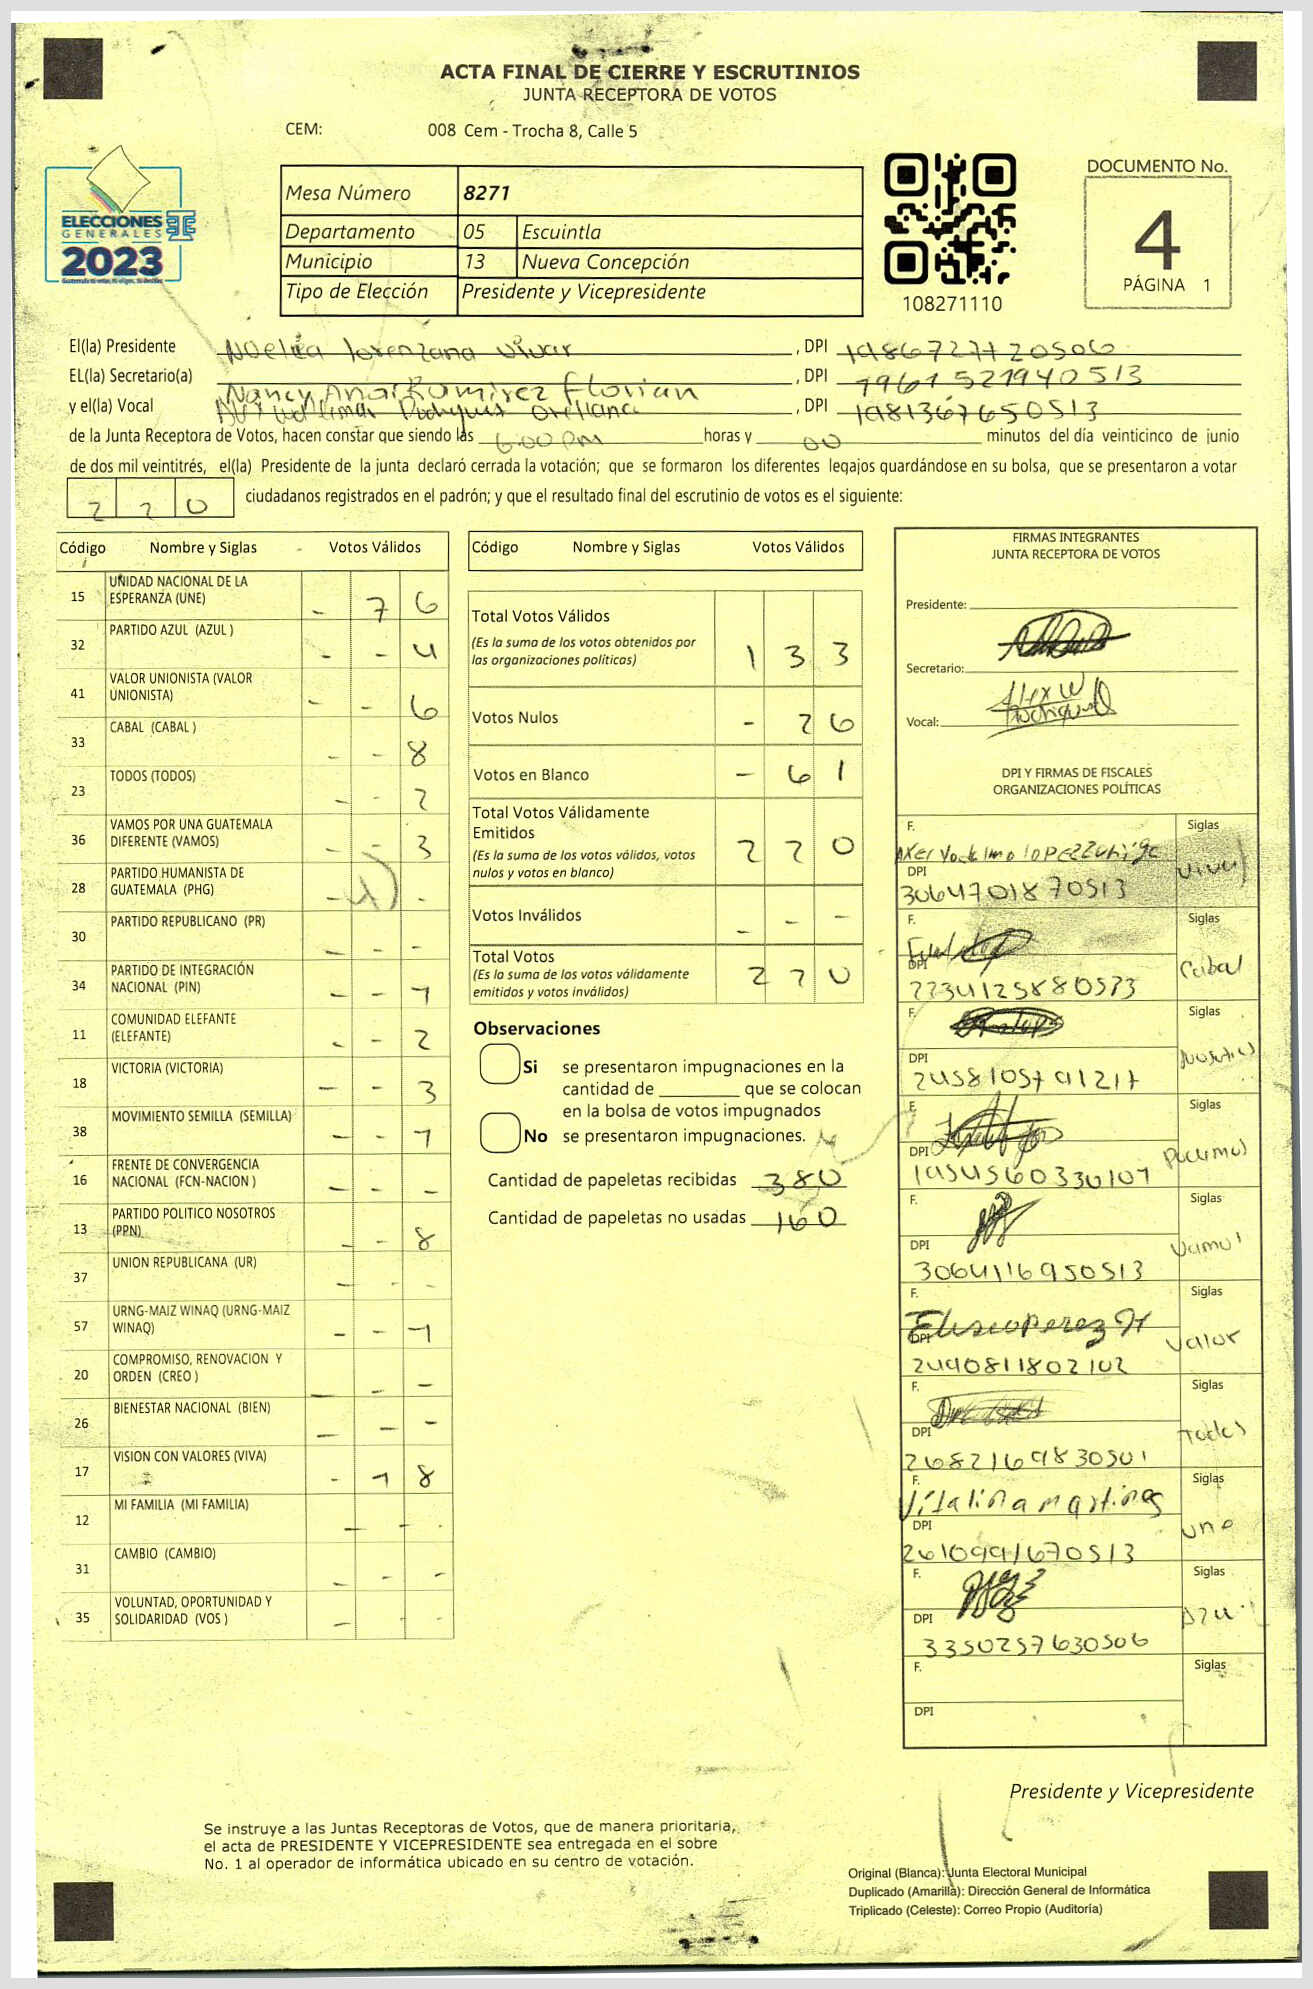 ACTA FINAL DE CIERRE Y ESCRUTINIOS
JUNTA RECEPTORA DE VOTOS
CEM: 008 Cem - Trocha 8, Calle 5
ELECCIONES
GENERALES
2023
Mesa Número 8271
Departamento 05 Escuintla
Municipio 13 Nueva Concepción
Tipo de Elección Presidente y Vicepresidente
108271110
DOCUMENTO No.
4
PÁGINA 1
El(la) Presidente Noelia lorenzana vivar, DPI
EL(la) Secretario(a) Nancy Anai Ramirez Florian, DPI 1961521940513
y el(la) Vocal Rodriguez Orellana, DPI 1981367650513
de la Junta Receptora de Votos, hacen constar que siendo las 6:00 pm horas y 00 minutos del día veinticinco de junio
de dos mil veintitrés, el(la) Presidente de la junta declaró cerrada la votación; que se formaron los diferentes legajos guardándose en su bolsa, que se presentaron a votar
220 ciudadanos registrados en el padrón; y que el resultado final del escrutinio de votos es el siguiente:
Código Nombre y Siglas Votos Válidos
15 UNIDAD NACIONAL DE LA ESPERANZA (UNE) - 7 6
32 PARTIDO AZUL (AZUL ) - - 4
41 VALOR UNIONISTA (VALOR UNIONISTA) - - 6
33 CABAL (CABAL ) - - 8
23 TODOS (TODOS) - - 2
36 VAMOS POR UNA GUATEMALA DIFERENTE (VAMOS) - - 3
28 PARTIDO HUMANISTA DE GUATEMALA (PHG) - -
30 PARTIDO REPUBLICANO (PR) - - -
34 PARTIDO DE INTEGRACIÓN NACIONAL (PIN) - - 1
11 COMUNIDAD ELEFANTE (ELEFANTE) - - 2
18 VICTORIA (VICTORIA) - - 3
38 MOVIMIENTO SEMILLA (SEMILLA) - - 1
16 FRENTE DE CONVERGENCIA NACIONAL (FCN-NACION ) - - -
13 PARTIDO POLITICO NOSOTROS (PPN) - - 8
37 UNION REPUBLICANA (UR) - - -
57 URNG-MAIZ WINAQ (URNG-MAIZ WINAQ) - - 1
20 COMPROMISO, RENOVACION Y ORDEN (CREO ) - - -
26 BIENESTAR NACIONAL (BIEN) - - -
17 VISION CON VALORES (VIVA) - 1 8
12 MI FAMILIA (MI FAMILIA) - - -
31 CAMBIO (CAMBIO) - - -
35 VOLUNTAD, OPORTUNIDAD Y SOLIDARIDAD (VOS ) - - -
Código Nombre y Siglas Votos Válidos
Total Votos Válidos 1 3 3
(Es la suma de los votos obtenidos por
las organizaciones políticas)
Votos Nulos - 2 6
Votos en Blanco - 6 1
Total Votos Válidamente
Emitidos 2 2 0
(Es la suma de los votos válidos, votos
nulos y votos en blanco)
Votos Inválidos - - -
Total Votos 2 2 0
(Es la suma de los votos válidamente
emitidos y votos inválidos)
Observaciones
Si se presentaron impugnaciones en la
cantidad de ________ que se colocan
en la bolsa de votos impugnados
No se presentaron impugnaciones.
Cantidad de papeletas recibidas 380
Cantidad de papeletas no usadas 160
FIRMAS INTEGRANTES
JUNTA RECEPTORA DE VOTOS
Presidente:
Secretario:
Vocal:
DPI Y FIRMAS DE FISCALES
ORGANIZACIONES POLÍTICAS
F. Siglas
DPI 3064701870513 viva
F. Siglas
DPI 2234125880573 Cabal
F. Siglas
DPI 2458105791217
F. Siglas
DPI 1954560330107 Podemos
F. Siglas
DPI 3064116950513 Vamos
F. Eliseo Perez Siglas
DPI 2490811802102 Valor
F. Siglas
DPI 2682169830501 Todos
F. Vitalina martinez Siglas
DPI 2610991670513 une
F. Siglas
DPI 3350257630506 Azul
F. Siglas
DPI
Presidente y Vicepresidente
Se instruye a las Juntas Receptoras de Votos, que de manera prioritaria,
el acta de PRESIDENTE Y VICEPRESIDENTE sea entregada en el sobre
No. 1 al operador de informática ubicado en su centro de votación.
Original (Blanca): Junta Electoral Municipal
Duplicado (Amarilla): Dirección General de Informática
Triplicado (Celeste): Correo Propio (Auditoría)